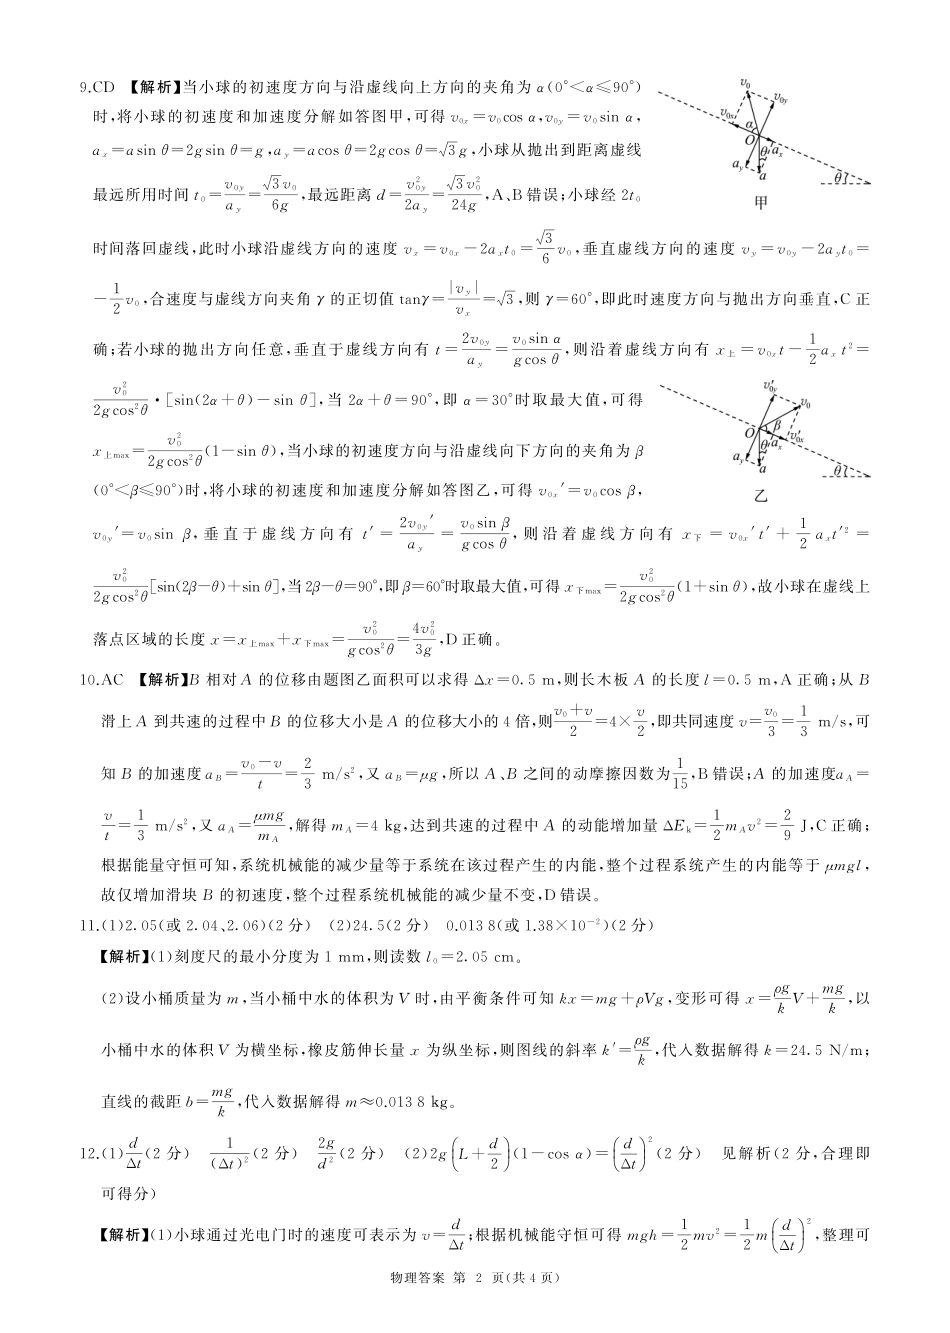 9.CD 【解析】当小球的初速度方向与沿虚线向上方向的夹角为 α(0°<α≤90°)
时,将小球的初速度和加速度分解如答图甲,可得 v₀ₓ=v₀cos α,v₀y=v₀sin α,
aₓ=asin θ=2gsin θ=g,a_y=acos θ=2gcos θ=√3g,小球从抛出到距离虚线
最远所用时间 t₀=v₀y/a_y=√3v₀/6g,最远距离 d=v₀y²/2a_y=√3v₀²/24g,A、B 错误;小球经 2t₀
v₀
v₀y
v₀ₓ
α
O
θ
aₓ
a_y
a
θ
甲
时间落回虚线,此时小球沿虚线方向的速度 vₓ=v₀ₓ-2aₓt₀=(√3/6)v₀,垂直虚线方向的速度 v_y=v₀y-2a_yt₀=
-(1/2)v₀,合速度与虚线方向夹角 γ 的正切值 tanγ=|v_y|/vₓ=√3,则 γ=60°,即此时速度方向与抛出方向垂直,C 正
确;若小球的抛出方向任意,垂直于虚线方向有 t=2v₀y/a_y=v₀sin α/gcos θ,则沿着虚线方向有 x上=v₀ₓt-(1/2)aₓt²=
v₀²/2gcos²θ·[sin(2α+θ)-sin θ],当 2α+θ=90°,即 α=30°时取最大值,可得
x上max=v₀²/2gcos²θ(1-sin θ),当小球的初速度方向与沿虚线向下方向的夹角为 β
(0°<β≤90°)时,将小球的初速度和加速度分解如答图乙,可得 v₀ₓ′=v₀cos β,
v′₀y
v₀
β
O
v′₀ₓ
θ
aₓ
a_y
a
θ
乙
v₀y′=v₀sin β,垂直于虚线方向有 t′=2v₀y′/a_y=v₀sin β/gcos θ,则沿着虚线方向有 x下=v₀ₓ′t′+(1/2)aₓt′²=
v₀²/2gcos²θ[sin(2β-θ)+sin θ],当 2β-θ=90°,即β=60°时取最大值,可得 x下max=v₀²/2gcos²θ(1+sin θ),故小球在虚线上
落点区域的长度 x=x上max+x下max=v₀²/gcos²θ=4v₀²/3g,D 正确。
10.AC 【解析】B 相对 A 的位移由题图乙面积可以求得 Δx=0.5 m,则长木板 A 的长度 l=0.5 m,A 正确;从 B
滑上 A 到共速的过程中 B 的位移大小是 A 的位移大小的 4 倍,则(v₀+v)/2=4×v/2,即共同速度 v=v₀/3=1/3 m/s,可
知 B 的加速度 a_B=(v₀-v)/t=2/3 m/s²,又 a_B=μg,所以 A、B 之间的动摩擦因数为1/15,B 错误;A 的加速度a_A=
v/t=1/3 m/s²,又 a_A=μmg/m_A,解得 m_A=4 kg,达到共速的过程中 A 的动能增加量 ΔEₖ=(1/2)m_Av²=2/9 J,C 正确;
根据能量守恒可知,系统机械能的减少量等于系统在该过程产生的内能,整个过程系统产生的内能等于 μmgl,
故仅增加滑块 B 的初速度,整个过程系统机械能的减少量不变,D 错误。
11.(1)2.05(或 2.04、2.06)(2 分) (2)24.5(2 分) 0.013 8(或 1.38×10⁻²)(2 分)
【解析】(1)刻度尺的最小分度为 1 mm,则读数 l₀=2.05 cm。
(2)设小桶质量为 m,当小桶中水的体积为 V 时,由平衡条件可知 kx=mg+ρVg,变形可得 x=(ρg/k)V+mg/k,以
小桶中水的体积 V 为横坐标,橡皮筋伸长量 x 为纵坐标,则图线的斜率 k′=ρg/k,代入数据解得 k=24.5 N/m;
直线的截距 b=mg/k,代入数据解得 m≈0.013 8 kg。
12.(1)d/Δt(2 分) 1/(Δt)²(2 分) 2g/d²(2 分) (2)2g(L+d/2)(1-cos α)=(d/Δt)²(2 分) 见解析(2 分,合理即
可得分)
【解析】(1)小球通过光电门时的速度可表示为 v=d/Δt;根据机械能守恒可得 mgh=(1/2)mv²=(1/2)m(d/Δt)²,整理可
物理答案 第 2 页(共 4 页)